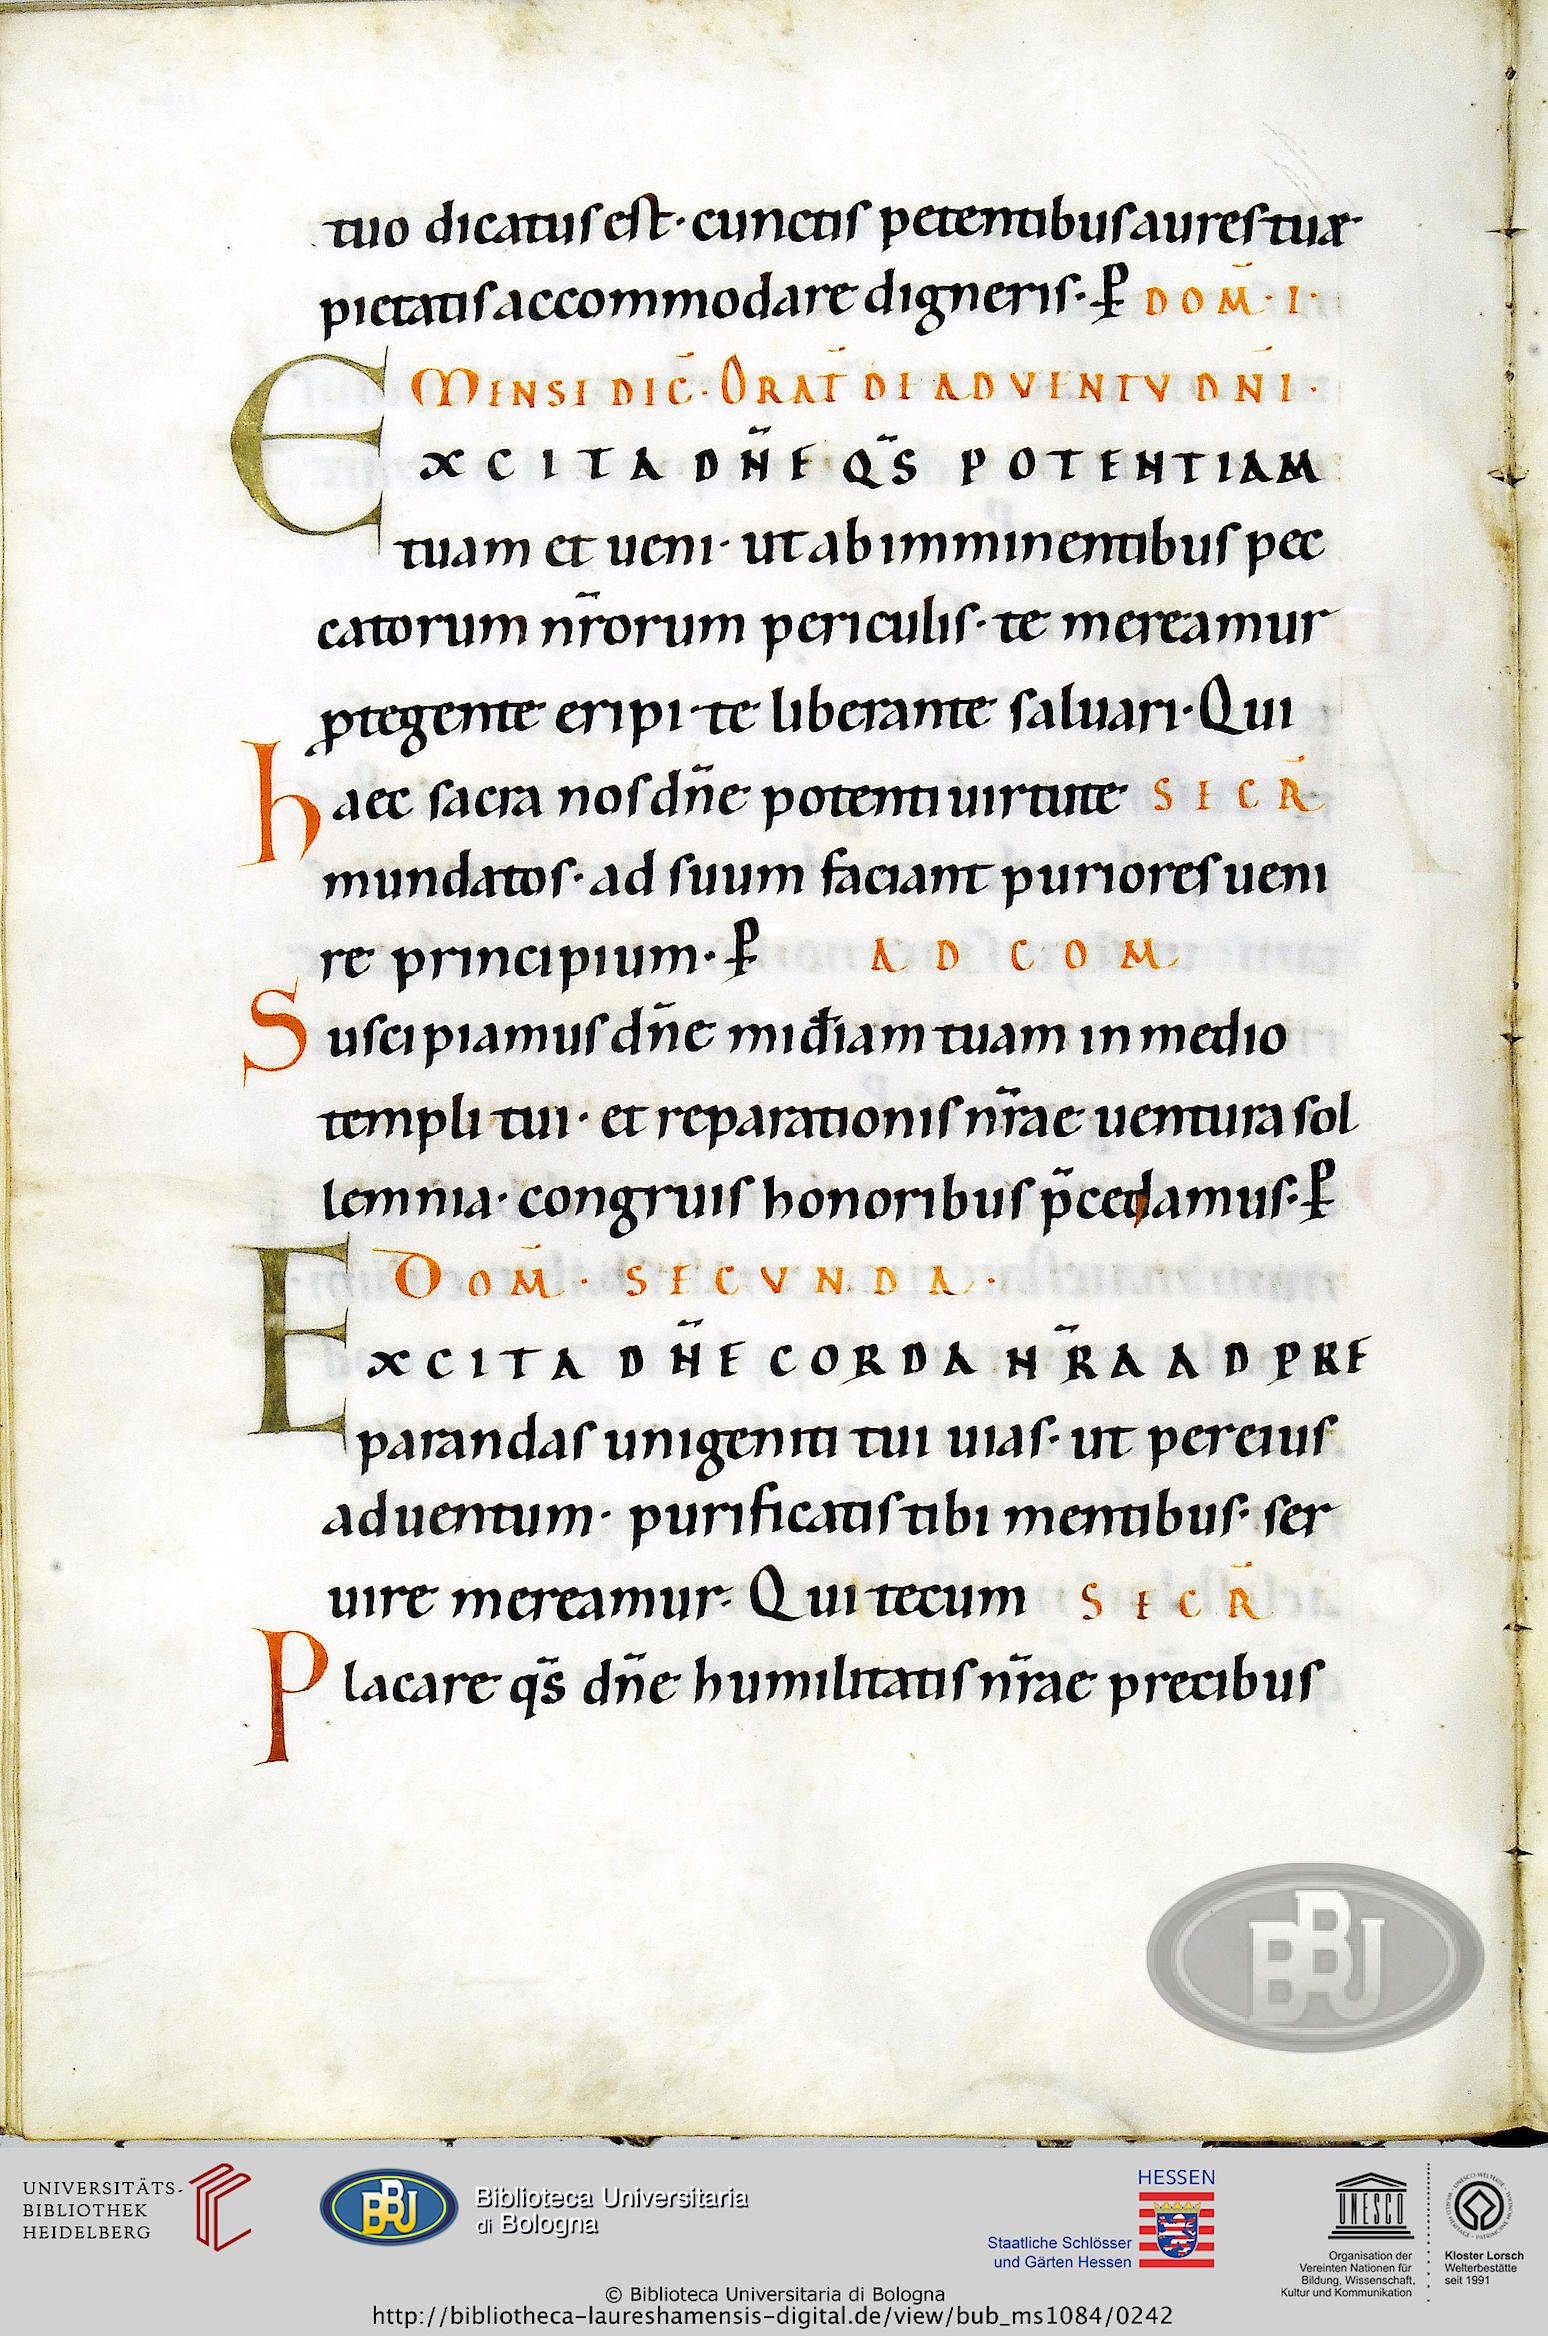 tuo dicatus est· cunctis petentibus aures tuae
pietatis accommodare digneris· P̲ DOM̅· I·
MENSE DEC̅· ORAT̅ DE ADVENTV DN̅I·
EXCITA DN̅E QS̅ POTENTIAM
tuam et ueni· ut ab imminentibus pec
catorum nr̅orum periculis· te mereamur
ꝓtegente eripi· te liberante saluari· Qui
haec sacra nos dn̅e potenti uirtute SECR̅
mundatos· ad suum faciant puriores ueni
re principium· P̲ AD COM
Suscipiamus dn̅e mid̅iam tuam in medio
templi tui· et reparationis nr̅ae uentura sol
lemnia· congruis honoribus p̅cedamus· P̲
DOM̅· SECVNDA·
EXCITA DN̅E CORDA NR̅A AD PRE
parandas unigeniti tui uias· ut per eius
aduentum· purificatis tibi mentibus· ser
uire mereamur· Qui tecum SECR̅
Placare qs̅ dn̅e humilitatis nr̅ae precibus
BBU
UNIVERSITÄTS-
BIBLIOTHEK
HEIDELBERG
BBU
Biblioteca Universitaria
di Bologna
HESSEN
Staatliche Schlösser
und Gärten Hessen
UNESCO
Organisation der
Vereinten Nationen für
Bildung, Wissenschaft,
Kultur und Kommunikation
Kloster Lorsch
Welterbestätte
seit 1991
© Biblioteca Universitaria di Bologna
http://bibliotheca-laureshamensis-digital.de/view/bub_ms1084/0242